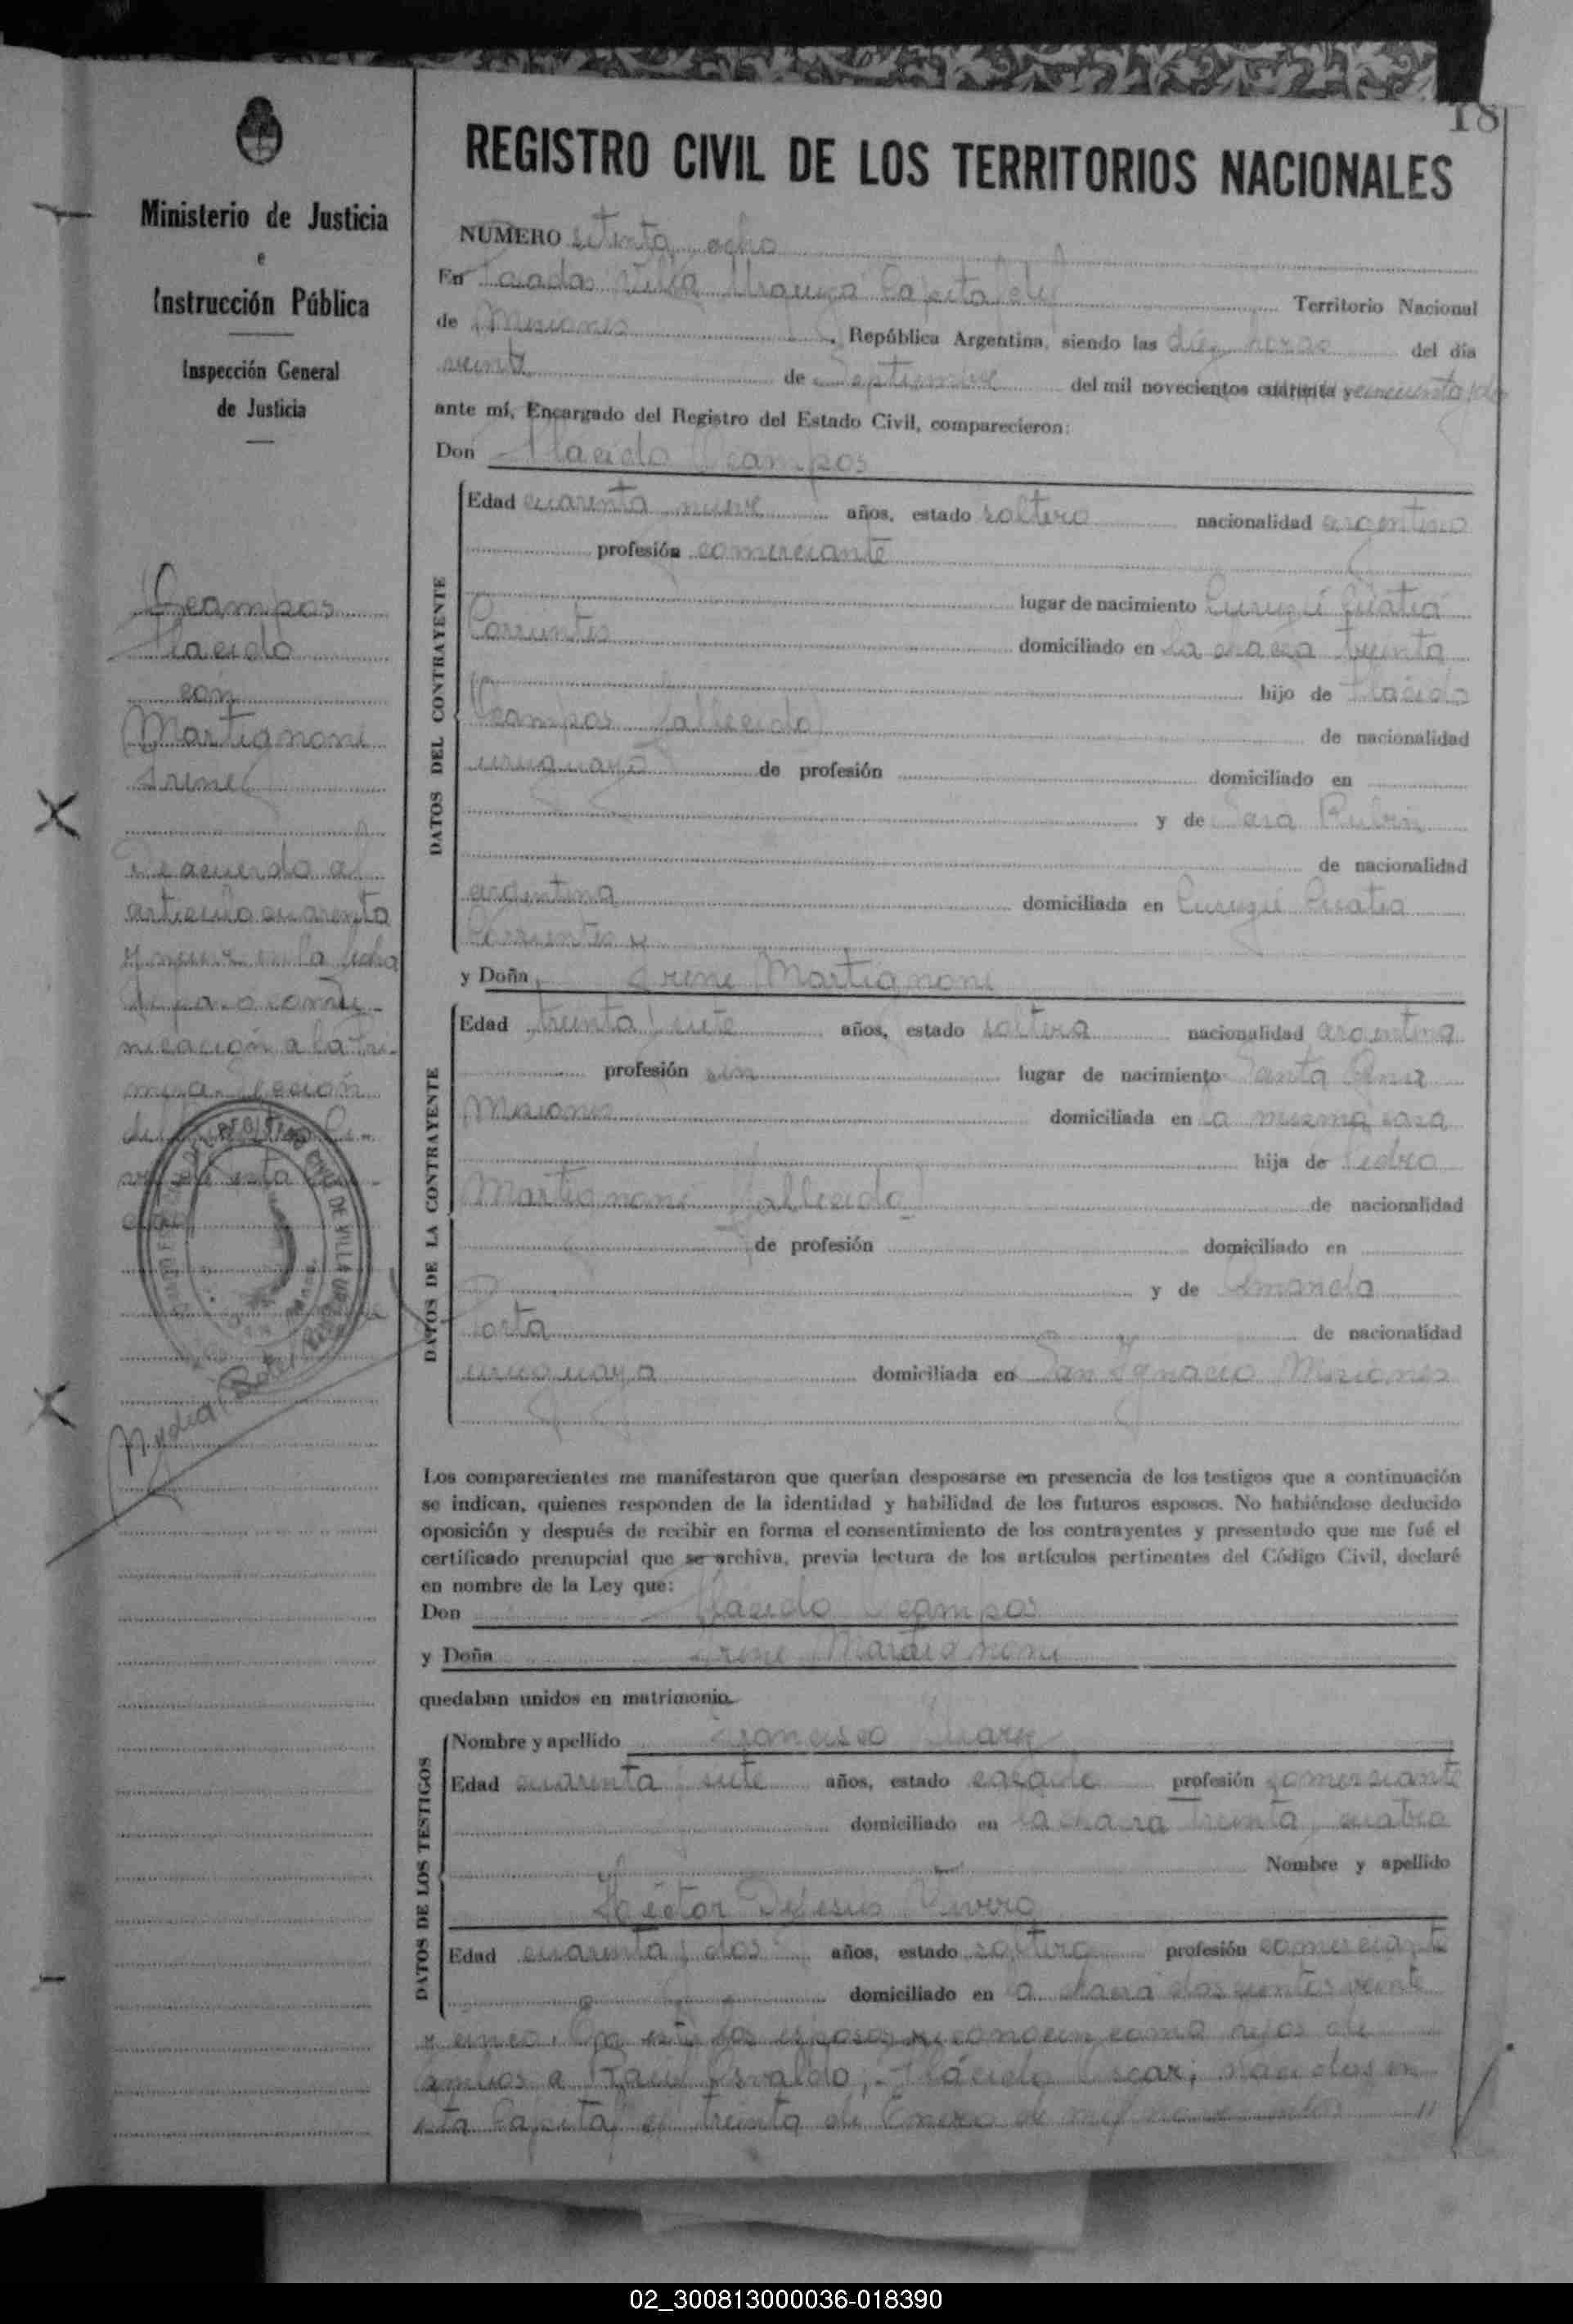 18
REGISTRO CIVIL DE LOS TERRITORIOS NACIONALES
Ministerio de Justicia
e
Instrucción Pública
Inspección General
de Justicia
NUMERO setenta ocho
En Posadas Villa Urquiza Capital del Territorio Nacional
de Misiones, República Argentina, siendo las diez horas del día
veinte de Septiembre del mil novecientos cuarenta y cincuenta dos
ante mí, Encargado del Registro del Estado Civil, comparecieron:
Don Plácido Ocampos
Ocampos
Plácido
con
Martignoni
Irene
De acuerdo al
artículo cuarenta
y nueve en la fecha
comu-
nicación a la Pri-
mera Sección
DATOS DEL CONTRAYENTE
Edad cuarenta nueve años, estado soltero nacionalidad argentino
profesión comerciante
lugar de nacimiento Curuzú Cuatiá
Corrientes domiciliado en la chacra treinta
hijo de Plácido
Ocampos fallecido de nacionalidad
uruguayo de profesión domiciliado en
y de Sara Rubin
de nacionalidad
argentina domiciliada en Curuzú Cuatia
Corrientes y
y Doña Irene Martignoni
DATOS DE LA CONTRAYENTE
Edad treinta siete años, estado soltera nacionalidad argentina
profesión sin lugar de nacimiento Santa Ana
Misiones domiciliada en la misma casa
hija de Pedro
Martignoni fallecido de nacionalidad
de profesión domiciliado en
y de Amanda
Porta de nacionalidad
uruguaya domiciliada en San Ignacio Misiones
Los comparecientes me manifestaron que querían desposarse en presencia de los testigos que a continuación
se indican, quienes responden de la identidad y habilidad de los futuros esposos. No habiéndose deducido
oposición y después de recibir en forma el consentimiento de los contrayentes y presentado que me fué el
certificado prenupcial que se archiva, previa lectura de los artículos pertinentes del Código Civil, declaré
en nombre de la Ley que:
Don Plácido Ocampos
y Doña Irene Martignoni
quedaban unidos en matrimonio.
DATOS DE LOS TESTIGOS
Nombre y apellido Francisco
Edad cuarenta siete años, estado casado profesión comerciante
domiciliado en la chacra treinta cuatro
Nombre y apellido
Héctor DeJesus Rivero
Edad cuarenta dos años, estado soltero profesión comerciante
domiciliado en la chacra doscientos veinte
y cinco. En este los esposos reconocen como hijos de
ambos a Raúl Osvaldo; Plácido Oscar; nacidos en
esta Capital el treinta de Enero de mil novecientos //
02_300813000036-018390